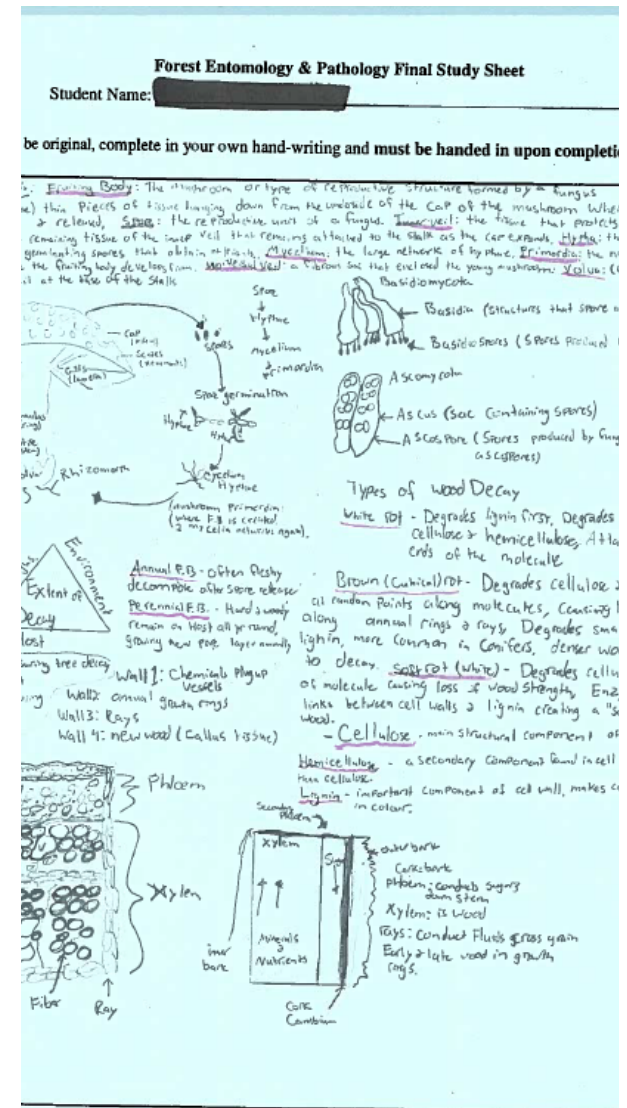 Forest Entomology & Pathology Final Study Sheet
Student Name:
be original, complete in your own hand-writing and must be handed in upon completi
Fruiting Body: The mushroom or type of reproductive structure formed by a fungus
thin pieces of tissue hanging down from the underside of the cap of the mushroom Whe
& released, Spore: the reproductive unit of a fungus. Inner veil: the tissue that protects
remaining tissue of the inner veil that remains attached to the stalk as the cap expands, Hypha: th
germinating spores that obtain Mycelium: the large network of hyphae, Primordia: the
the fruiting body develops from. Universal veil: a fibrous sac that enclosed the young mushroom: Volva:
at the base of the stalk
Spore
Hyphae
Mycelium
Primordia
Basidiomycota
Basidia (structures that spore
Basidiospores (Spores Produced
Cap
Scales
Gills
(lamella)
Spores
Spore germination
Hyphae
Mycelium
Hyphae
Rhizomorph
(mushroom Primordia:
(where F.B is created
Ascomycota
Ascus (Sac Containing Spores)
Ascospore (Spores produced by fung
Types of Wood Decay
White rot - Degrades lignin first, Degrades
cellulose & hemicellulose, Atta
ends of the molecule
Environment
Extent of
Decay
Annual F.B. - often fleshy
decompose after spore release
Perennial F.B. - Hard & woody
remain on Host all year round,
growing new pore layer annually
Brown (Cubical) rot - Degrades cellulose
at random Points along molecules, causing
along annual rings & rays, Degrades sma
lignin, more common in conifers, denser wo
to decay. Soft rot (white) - Degrades cellu
of molecule causing loss of wood strength, Enz
links between cell walls & lignin creating a "s
wood.
tree decay
Wall 1: Chemicals Plug up
vessels
Wall 2: annual growth rings
Wall 3: Rays
Wall 4: new wood (Callus tissue)
- Cellulose - main structural component of
Hemicellulose - a secondary component found in cell
than cellulose.
Lignin - important component of cell wall, makes
in colour.
Phloem
Xylem
Fiber
Ray
Secondary
Phloem
Xylem
Minerals
&
Nutrients
inner
bark
Cork
Cambium
outer bark
Cork: bark
Phloem: conducts sugars
down stem
Xylem: is Wood
rays: Conduct Fluids cross grain
Early & late wood in growth
rings.